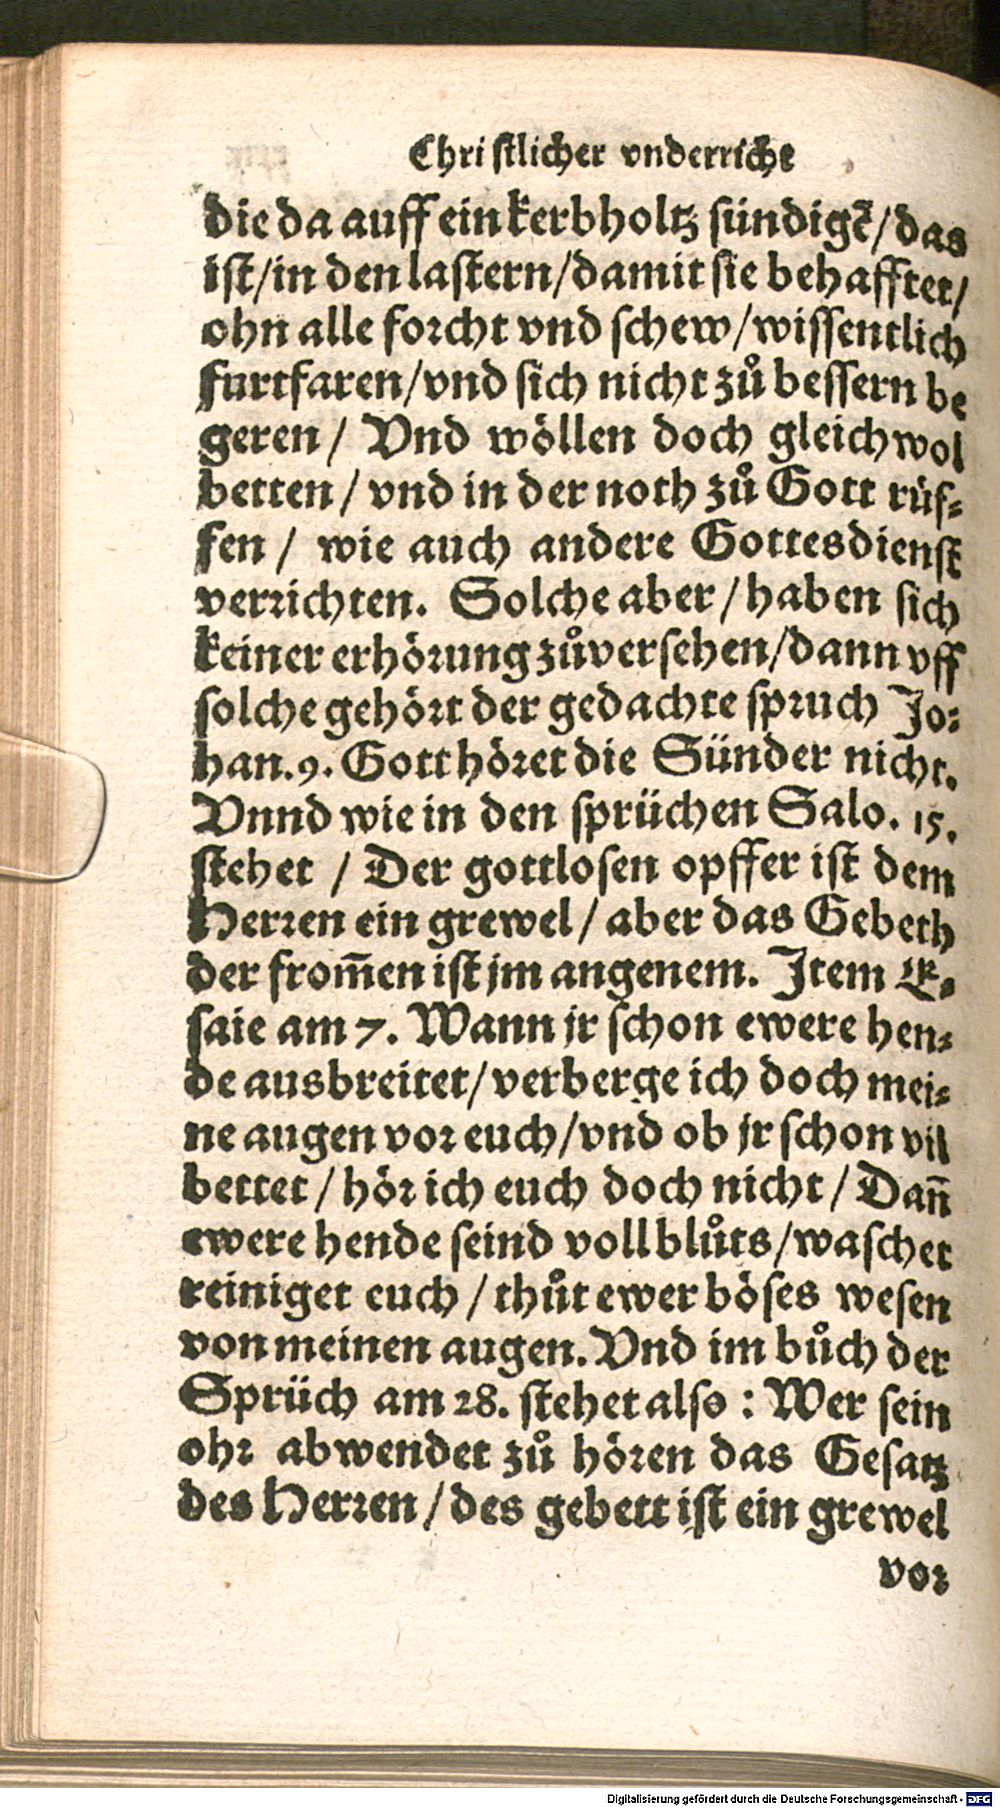 Christlicher vnderricht
die da auff ein kerbholtz sündigẽ/das
ist/in den lastern/damit sie behafftet/
ohn alle forcht vnd schew/wissentlich
furtfaren/vnd sich nicht zů bessern be
geren/ Vnd wöllen doch gleichwol
betten/vnd in der noth zů Gott rüf-
fen/ wie auch andere Gottesdienst
verrichten. Solche aber/haben sich
keiner erhörung zůversehen/dann vff
solche gehört der gedachte spruch Jo-
han.9. Gott höret die Sünder nicht.
Vnnd wie in den sprüchen Salo. 15.
stehet / Der gottlosen opffer ist dem
Herren ein grewel/aber das Gebeth
der from̃en ist jm angenem. Item E-
saie am 7. Wann jr schon ewere hen-
de ausbreitet/verberge ich doch mei-
ne augen vor euch/vnd ob jr schon vil
bettet/hör ich euch doch nicht/Dañ
ewere hende seind voll blůts/waschet
reiniget euch/thůt ewer böses wesen
von meinen augen. Vnd im bůch der
Sprüch am 28. stehet also: Wer sein
ohr abwendet zů hören das Gesatz
des Herren/des gebett ist ein grewel
vor
Digitalisierung gefördert durch die Deutsche Forschungsgemeinschaft - DFG